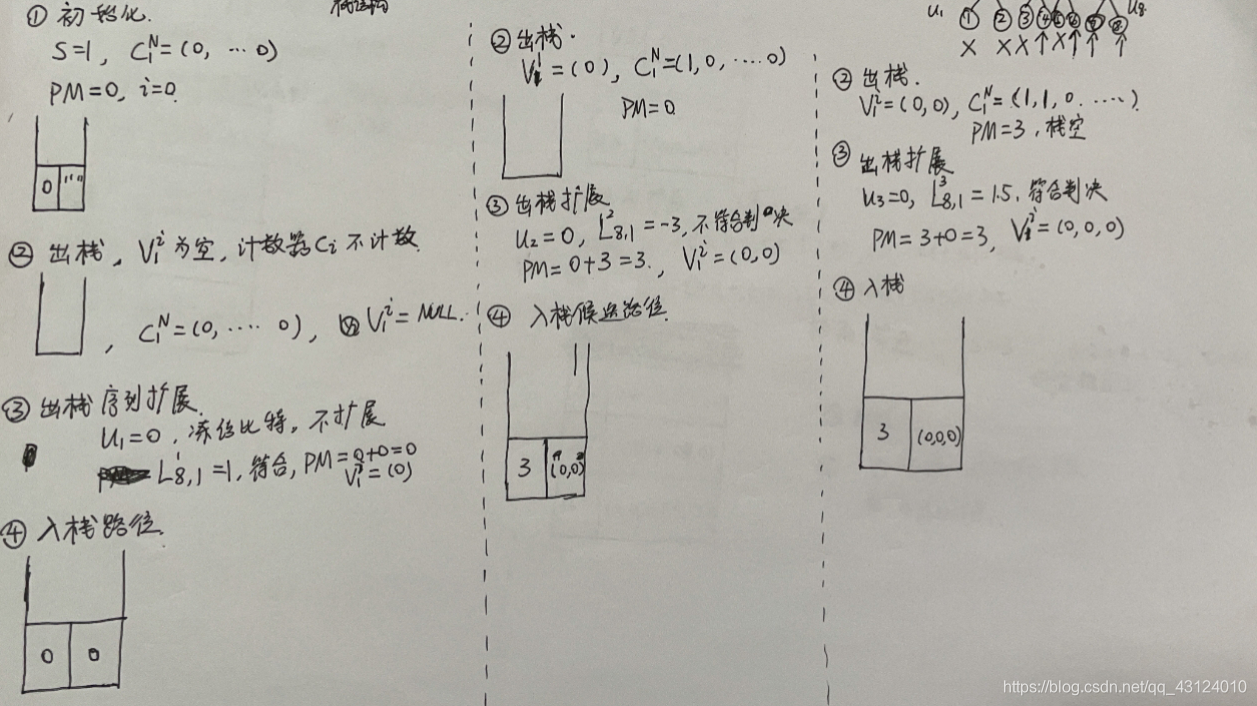 ① 初始化.
S=1, C₁ᴺ=(0, ···0)
PM=0, i=0.
0 ""
② 出栈, V₁ⁱ为空, 计数器Cᵢ不计数.
, C₁ᴺ=(0, ···· 0), V₁ⁱ= NULL.
③ 出栈序列扩展.
U₁=0, 冻结比特, 不扩展
L¹₈,₁=1, 符合, PM=0+0=0
V₁ⁱ=(0)
④ 入栈路径.
0 0
② 出栈.
V₁ⁱ=(0), C₁ᴺ=(1,0,····0)
PM=0
③ 出栈扩展
U₂=0, L²₈,₁=-3, 不符合判决
PM=0+3=3., V₁ⁱ=(0,0)
④ 入栈候选路径.
3 (0,0)
U₁ ① ② ③ ④ ⑤ ⑥ ⑦ ⑧ U₈
× × × ↑ × ↑ ↑ ↑
② 出栈.
V₁ⁱ=(0,0), C₁ᴺ=(1,1,0.····).
PM=3, 栈空
③ 出栈扩展
U₃=0, L³₈,₁=1.5, 符合判决
PM=3+0=3, V₁ⁱ=(0,0,0)
④ 入栈
3 (0,0,0)
https://blog.csdn.net/qq_43124010